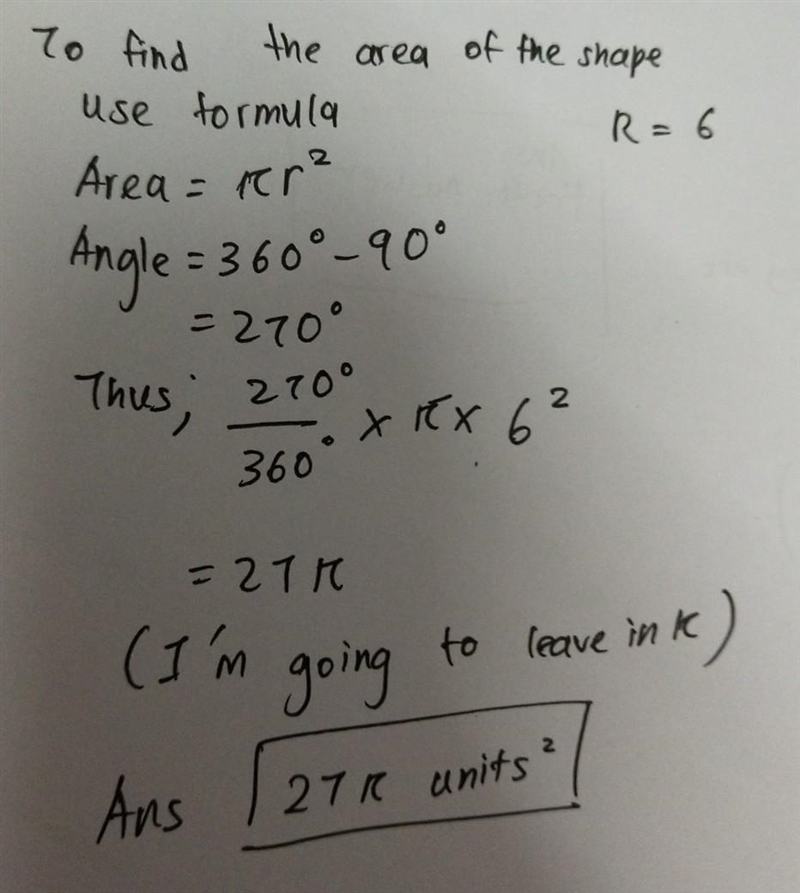 To find the area of the shape
use formula
R = 6
Area = πr²
Angle = 360° - 90°
= 270°
Thus; 270°/360° × π × 6²
= 27π
(I'm going to leave in π)
Ans 27π units²